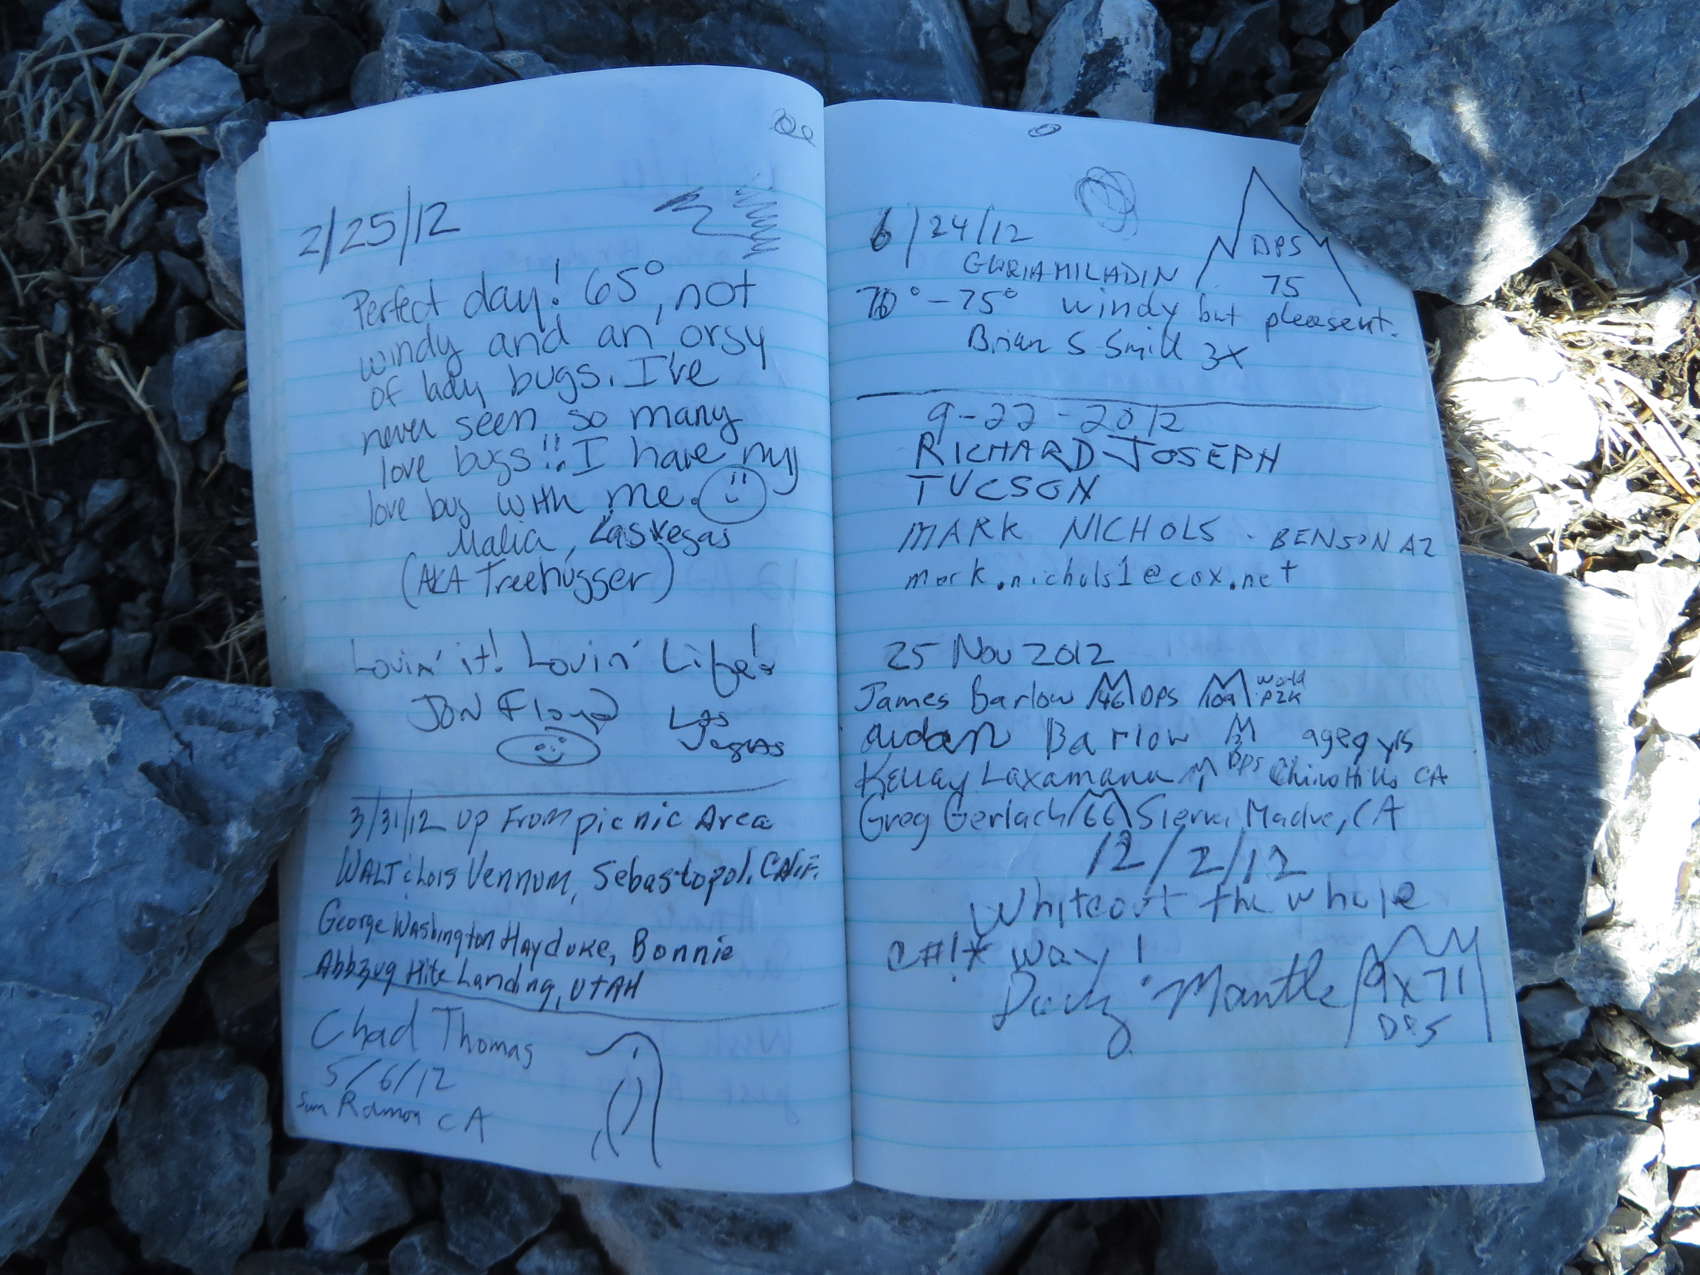 2/25/12
Perfect day! 65°, not
windy and an orsy
of lady bugs. I've
never seen so many
love bugs!! I have my
love bug with me.
Malia, Las Vegas
(AKA Treehugger)
Lovin' it! Lovin' Life!
JON Floyd Las
Vegas
3/31/12 up From picnic Area
WALT & LOIS Vennum, Sebastopol, CALIF.
George Washington Hayduke, Bonnie
Abbzug Hite Landing, UTAH
Chad Thomas
5/6/12
San Ramon CA
6/24/12
GLORIA MILADIN DPS
75
70°-75° windy but pleasent.
Brian S Smith 3X
9-22-2012
RICHARD JOSEPH
TUCSON
MARK NICHOLS - BENSON AZ
mark.nichols1@cox.net
25 Nov 2012
James Barlow 46 DPS 109 world P2K
Aidan Barlow 3 age 9 yrs
Kellay Laxamana DPS Chino Hills CA
Greg Gerlach 66 Sierra Madre, CA
12/2/12
Whiteout the whole
@#!* way!
Mantle 9x71
DPS